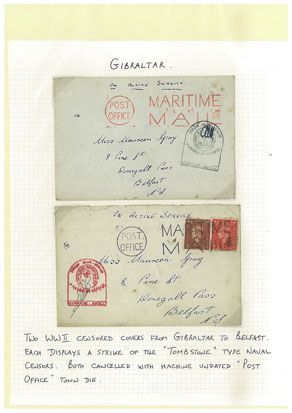 GIBRALTAR.
ON ACTIVE SERVICE
POST OFFICE
MARITIME
MAIL
Miss Maureen Gray
8 Pine St
Donegall Pass
Belfast
N.I.
ON ACTIVE SERVICE
POST OFFICE
MA
M
Miss Maureen Gray
8 Pine St
Donegall Pass
Belfast
N.I.
TWO WWII CENSORED COVERS FROM GIBRALTAR TO BELFAST.
EACH DISPLAYS A STRIKE OF THE "TOMBSTONE" TYPE NAVAL
CENSORS. BOTH CANCELLED WITH MACHINE UNDATED "POST
OFFICE" TOWN DIE.